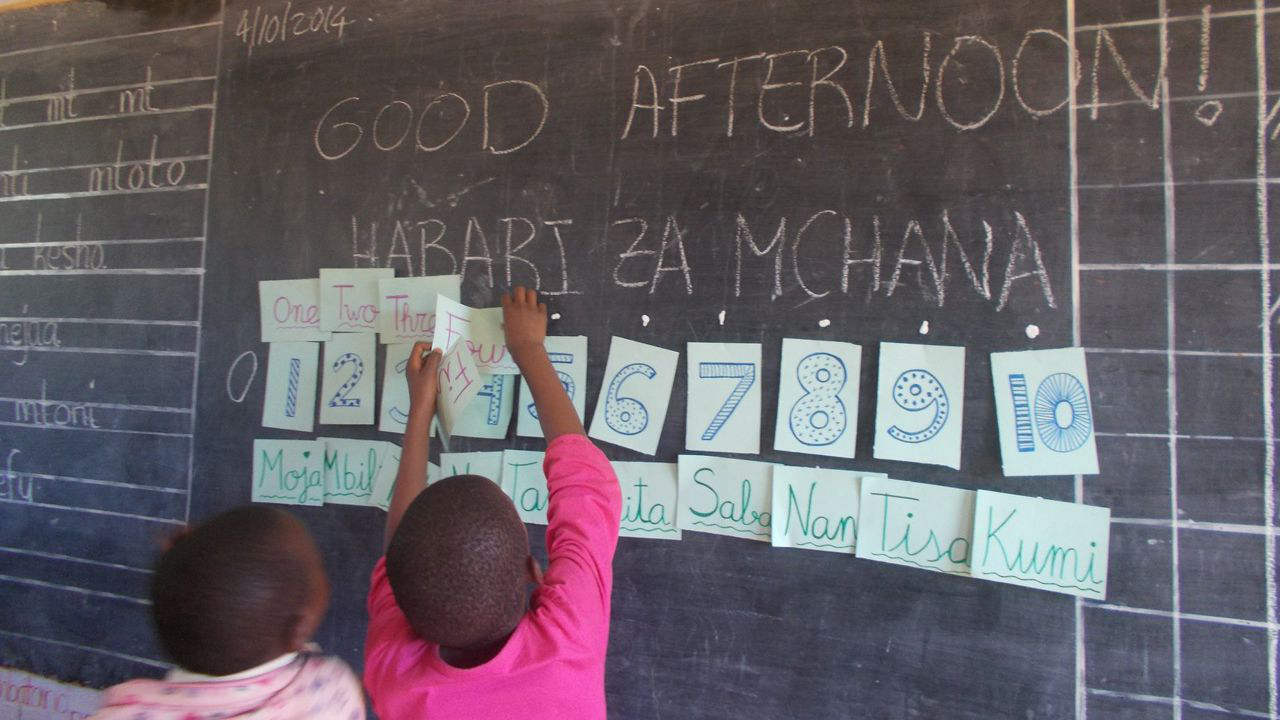 4/10/2014
GOOD AFTERNOON!
HABARI ZA MCHANA
mt mt
mtoto
kesha
mtori
One Two Thre Four
0 1 2 3 4 5 6 7 8 9 10
Moja Mbil Ta ita Saba Nan Tisa Kumi